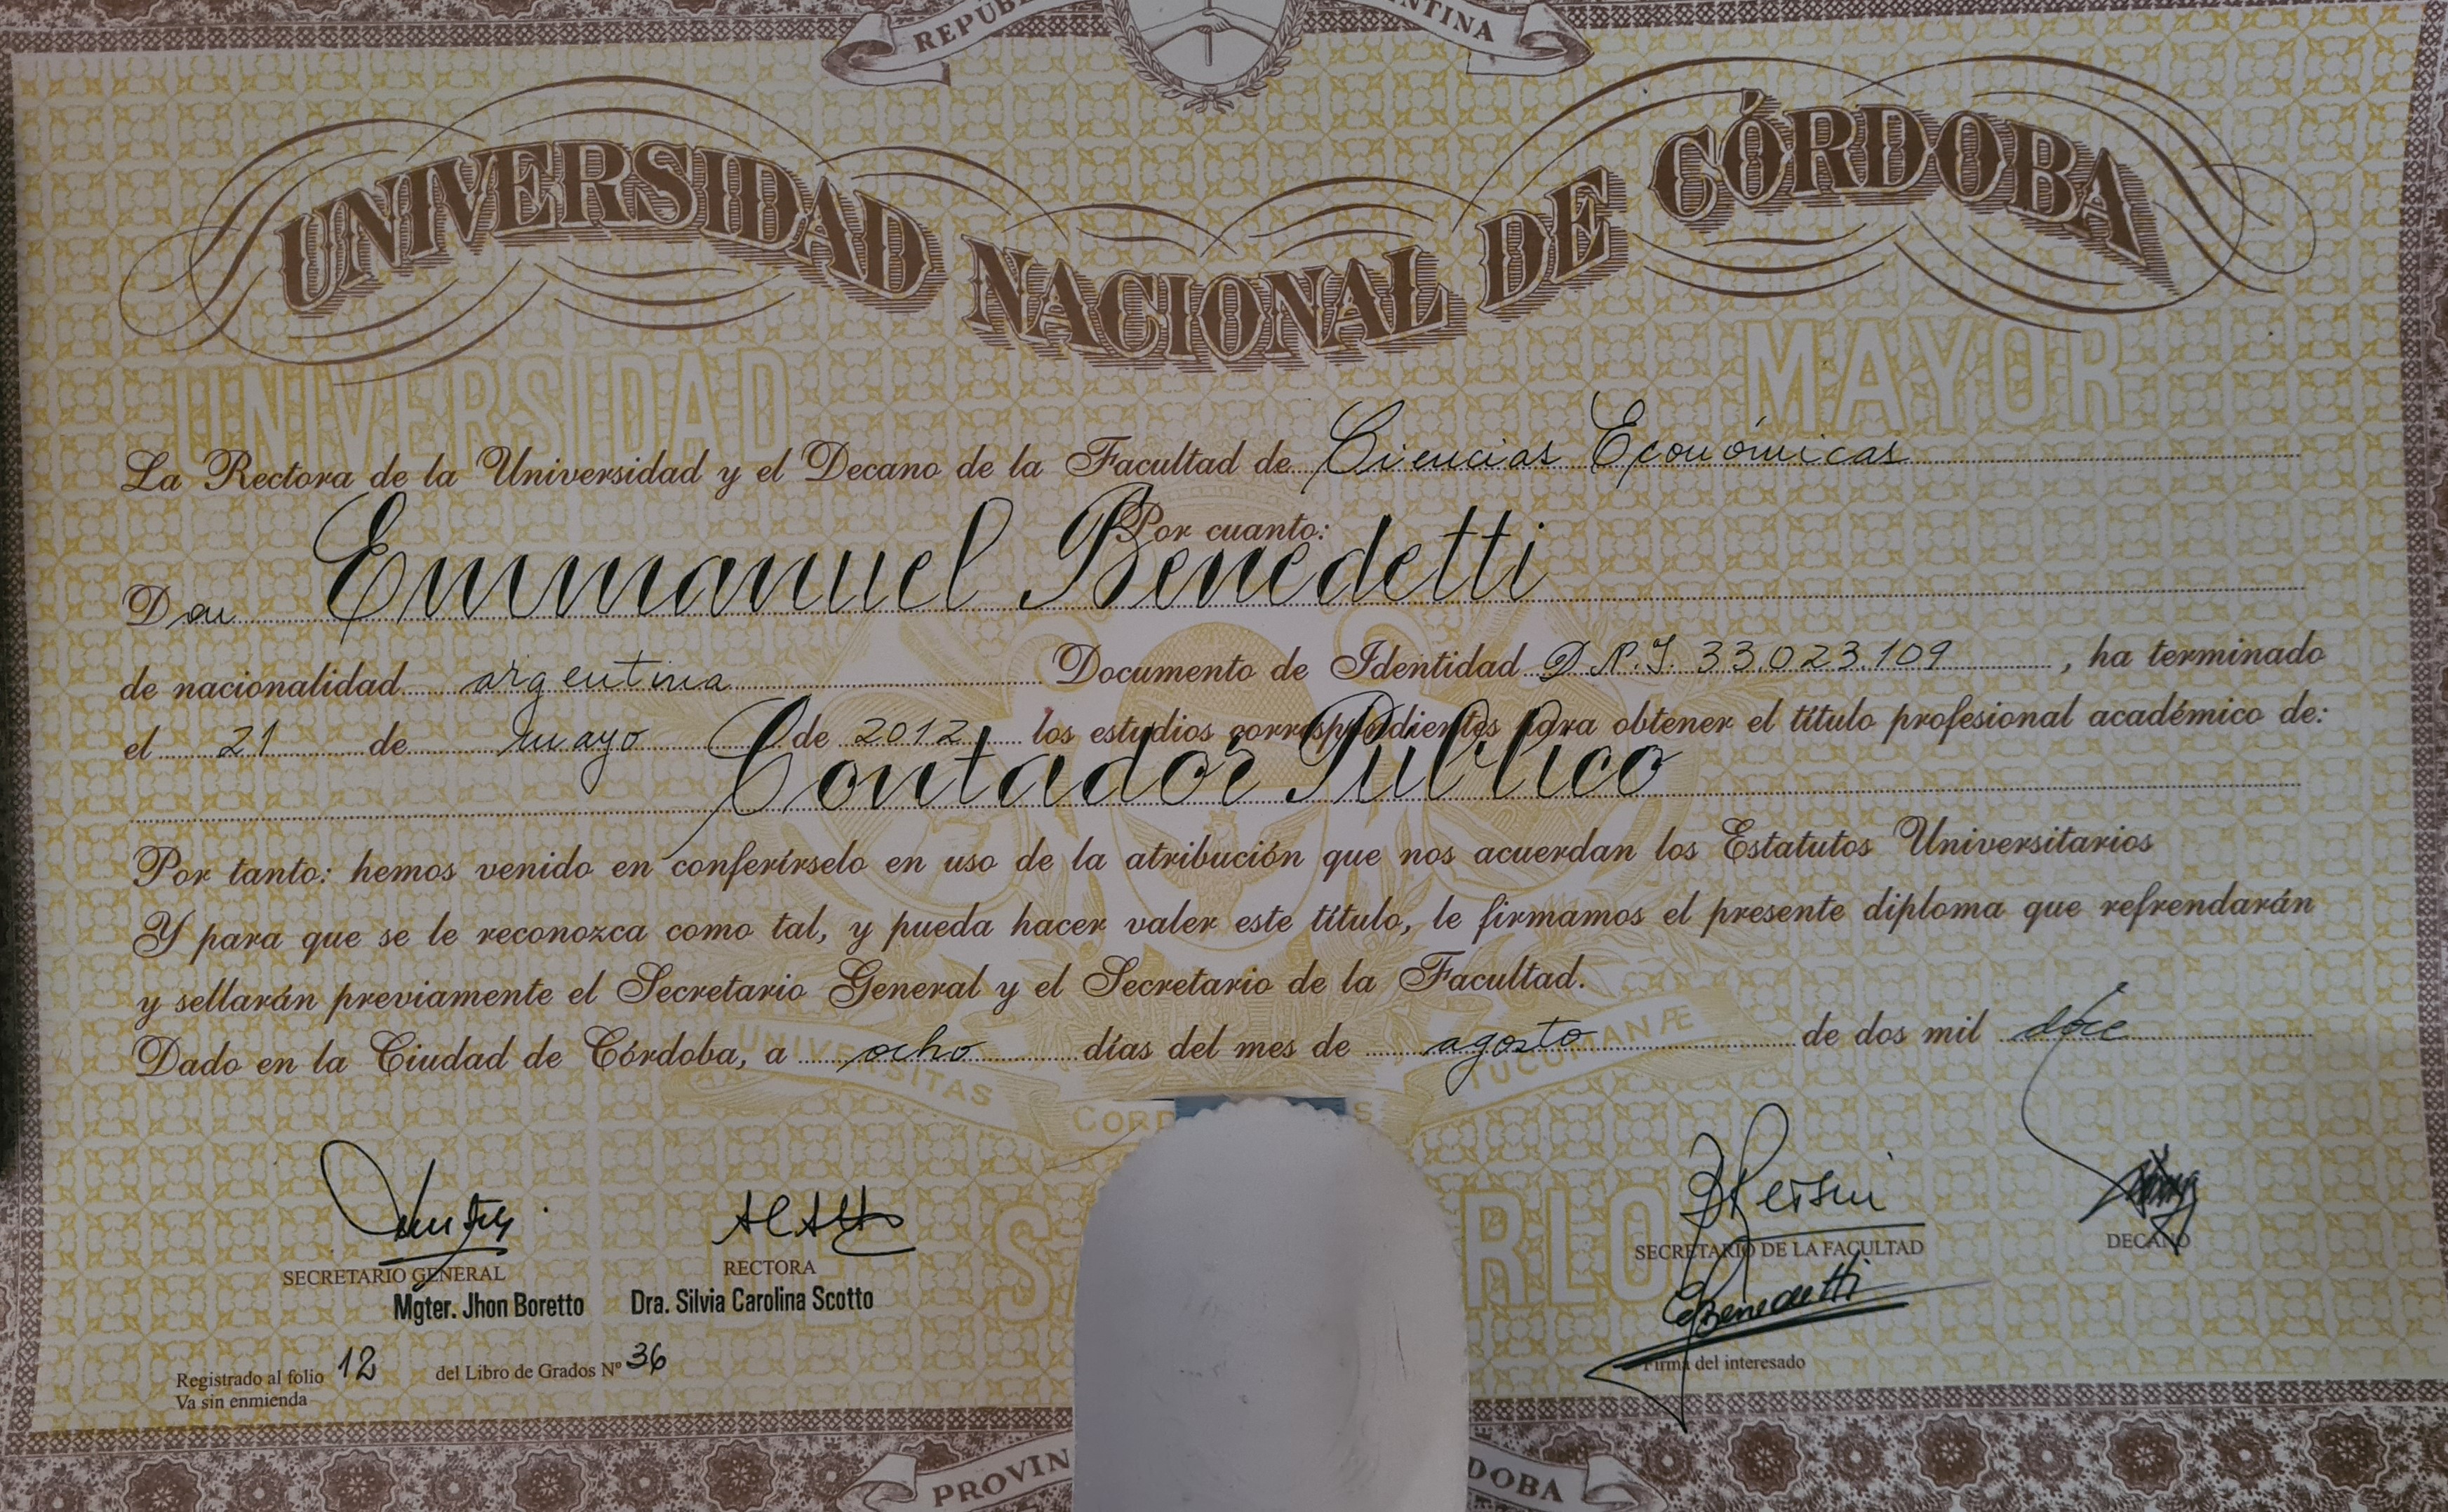 REPÚB NTINA
UNIVERSIDAD NACIONAL DE CÓRDOBA
UNIVERSIDAD MAYOR
La Rectora de la Universidad y el Decano de la Facultad de Ciencias Económicas
Por cuanto:
Don Emmanuel Benedetti
de nacionalidad argentina Documento de Identidad D.N.I. 33.023.109, ha terminado
el 21 de mayo de 2012 los estudios correspondientes para obtener el título profesional académico de:
Contador Público
Por tanto: hemos venido en conferírselo en uso de la atribución que nos acuerdan los Estatutos Universitarios
Y para que se le reconozca como tal, y pueda hacer valer este título, le firmamos el presente diploma que refrendarán
y sellarán previamente el Secretario General y el Secretario de la Facultad.
Dado en la Ciudad de Córdoba, a ocho días del mes de agosto de dos mil doce
UNIVERSITAS CORD TUCUMANÆ
S RLO
SECRETARIO GENERAL RECTORA SECRETARIO DE LA FACULTAD DECANO
Mgter. Jhon Boretto Dra. Silvia Carolina Scotto
Benedetti
Firma del interesado
Registrado al folio 12 del Libro de Grados Nº 36
Va sin enmienda
PROVIN DOBA